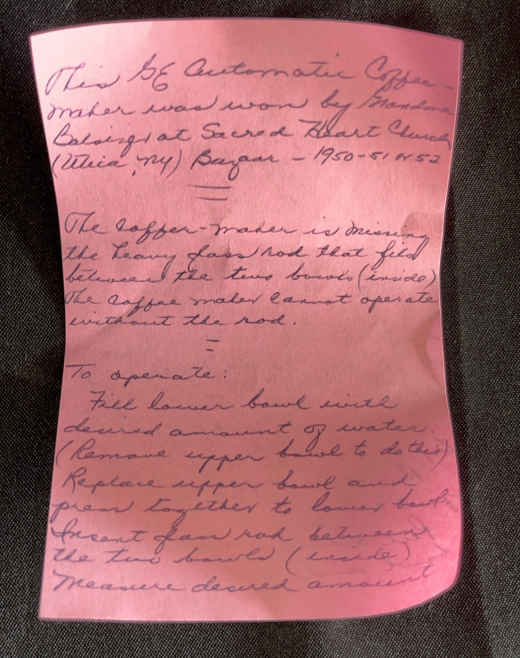 This GE Automatic Coffee-
maker was won by Grandma
at Sacred Heart Church
(Utica, NY) Bazaar - 1950-51 or 52
The coffee-maker is missing
the heavy glass rod that fits
between the two bowls (inside)
The coffee maker cannot operate
without the rod.
To operate:
Fill lower bowl with
desired amount of water.
(Remove upper bowl to do this)
Replace upper bowl and
press together to lower bowl.
Insert glass rod between
the two bowls (inside)
Measure desired amount